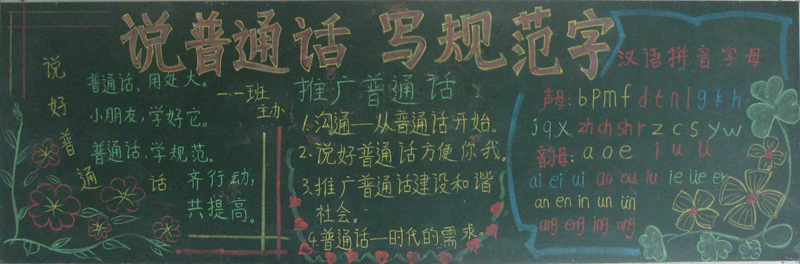 说普通话 写规范字
说好普通话
普通话,用处大。
小朋友,学好它。
普通话,学规范。
齐行动,
共提高。
一一班
主办
推广普通话
1.沟通—从普通话开始。
2.说好普通话方便你我。
3.推广普通话建设和谐
社会。
4.普通话—时代的需求。
汉语拼音字母
声母:b p m f d t n l g k h
j q x zh ch sh r z c s y w
韵母:a o e i u ü
ai ei ui ao ou iu ie üe er
an en in un ün
ang eng ing ong